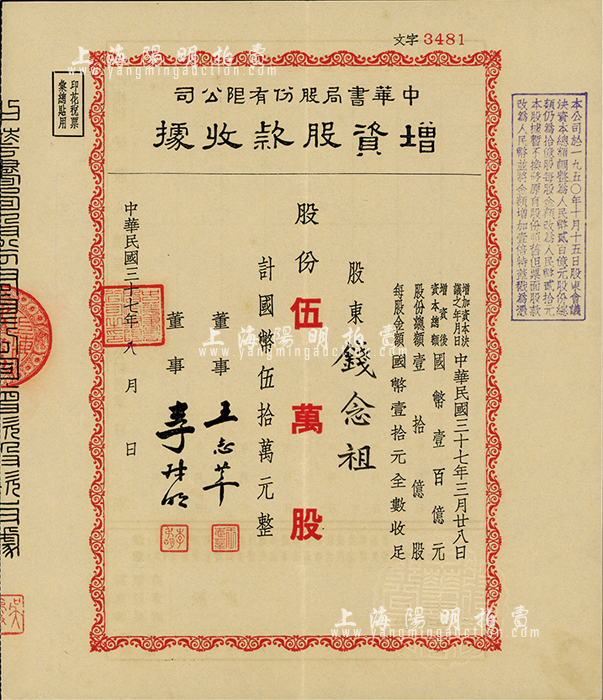 上海陽明拍賣
www.yangmingauction.com
文字 3481
中華書局股份有限公司
增資股款收據
印花稅票
彙總貼用
本公司於一九五〇年十月十五日股東會議
決資本總額調整為人民幣貳百億元股份總
額仍為拾億股每股金額改為人民幣貳拾元
本股據暫不換發原有股份但票面股款
改為人民幣並將金額增加壹倍特蓋戳為憑
增加資本決議之年月日 中華民國三十七年三月廿八日
增資後資本總額 國幣壹百億元
股份總額 壹拾億股
每股金額 國幣壹拾元全數收足
股東 錢念祖
股份 伍萬股
計國幣伍拾萬元整
董事 王志莘
董事 李叔明
中華民國三十七年八月 日
上海陽明拍賣
www.yangmingauction.com
上海陽明拍賣
www.yangmingauction.com